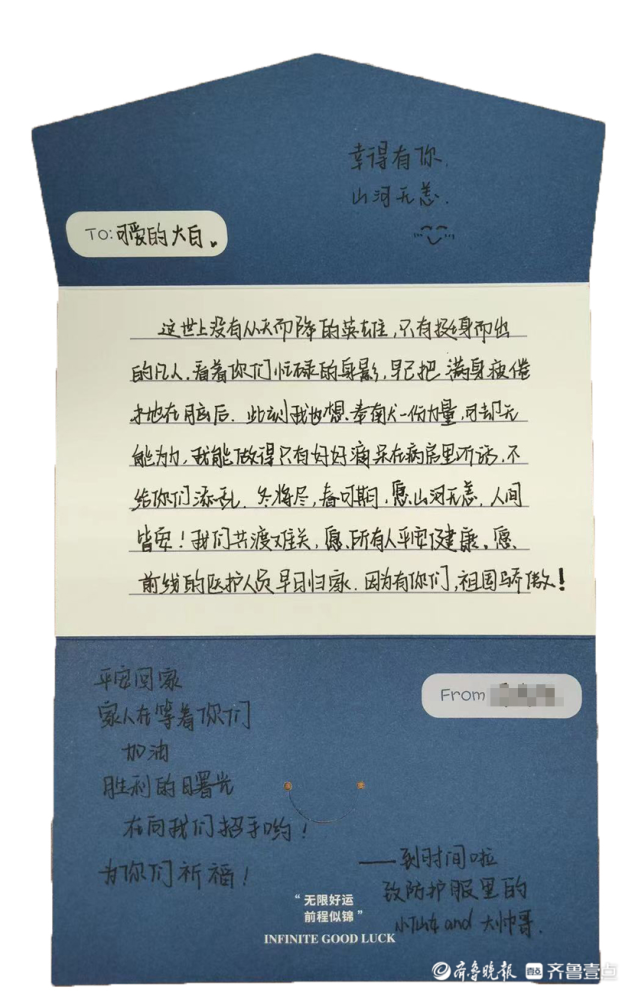 幸得有你.
山河无恙.
TO:可爱的大白.
这世上没有从天而降的英雄,只有挺身而出
的凡人.看着你们忙碌的身影,早已把 满身疲倦
地在脑后. 此刻我也想奉献一份力量,可却无
能为力,我能做得只有好好滴呆在病房里听话,不
给你们添乱. 冬将尽,春可期,愿山河无恙.人间
皆安!我们共渡难关,愿所有人平安健康.愿
前线的医护人员早日归家. 因为有你们,祖国骄傲!
From
平安回家
家人在等着你们
加油
胜利的曙光
在向我们招手哟!
为你们祈福!
——到时间啦
致防护服里的
小仙女and 大帅哥.
“无限好运
前程似锦”
INFINITE GOOD LUCK
齐鲁晚报 齐鲁壹点